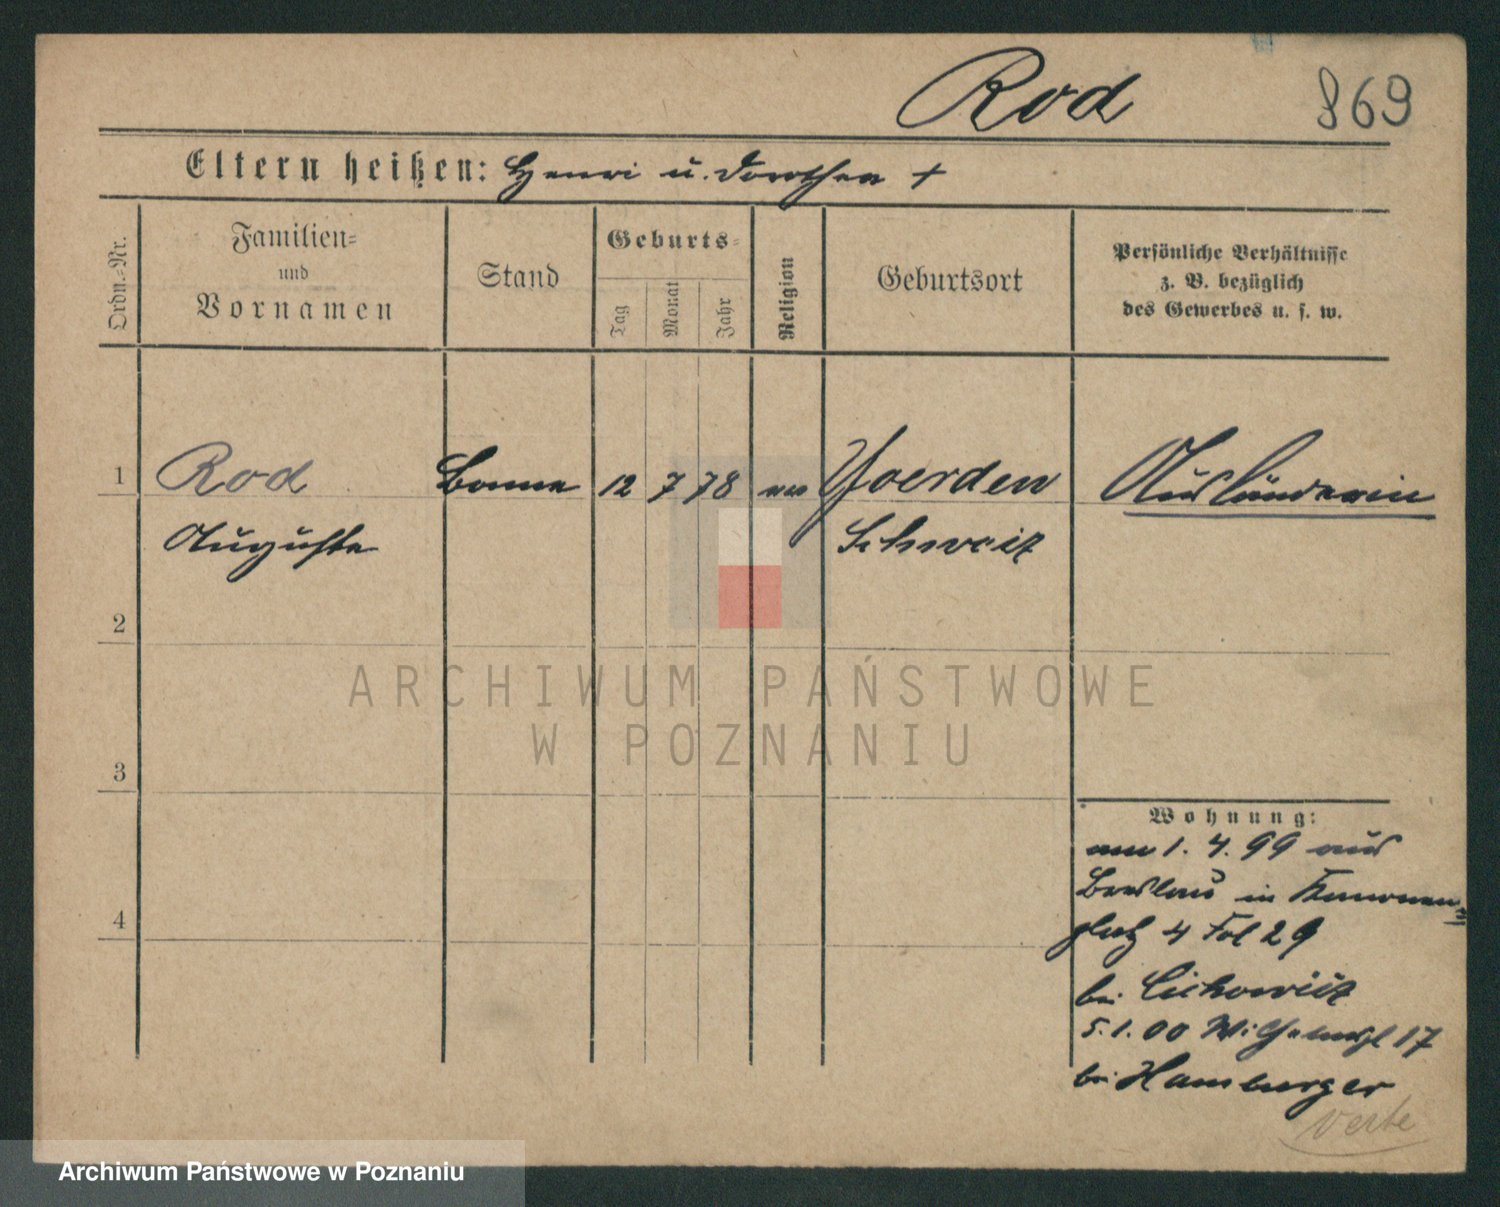 Rod
869
Eltern heißen: Henri u. Dorothea +
Ordn.-Nr.
Familien-
und
Vornamen
Stand
Geburts-
Tag
Monat
Jahr
Religion
Geburtsort
Persönliche Verhältnisse
z. B. bezüglich
des Gewerbes u. s. w.
1 Rod Bonne 12 7 78 Yverden Ausländerin
Auguste Schweiz
2
3
4
Wohnung:
am 1. 4. 99 aus
Breslau in Kanonen=
platz 4 Fol 29
bei
5. 1. 00 Wilhelmspl 17
bei Hamburger
verte
ARCHIWUM PAŃSTWOWE
W POZNANIU
Archiwum Państwowe w Poznaniu